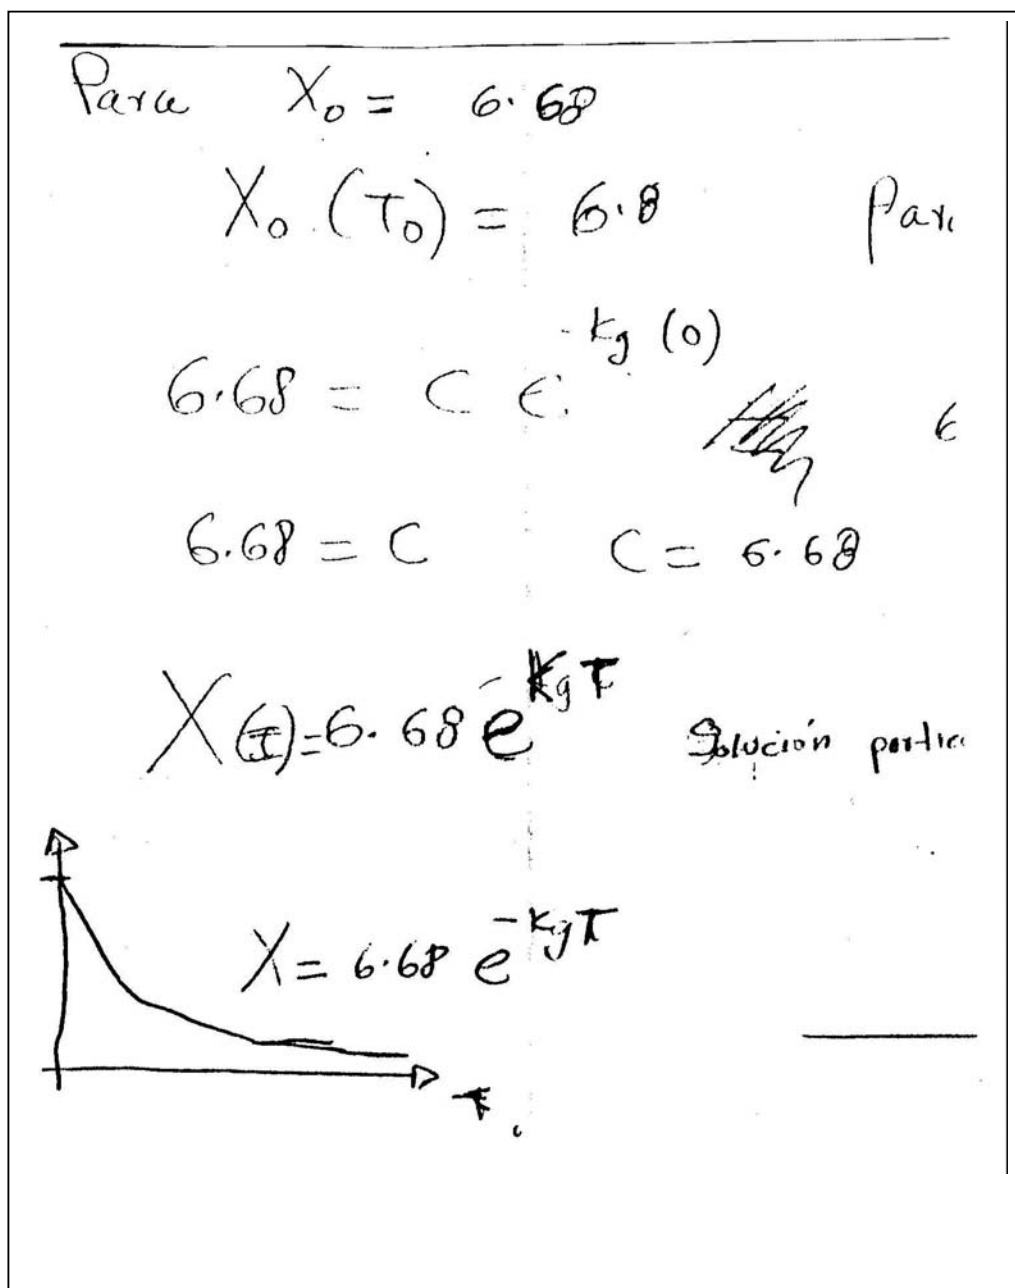 Para X₀ = 6.68
X₀ (T₀) = 6.8 Par
6.68 = C e^-kg (0) 6
6.68 = C C = 6.68
X(T)=6.68 e^-KgT Solución partic
X = 6.68 e^-kgT
T